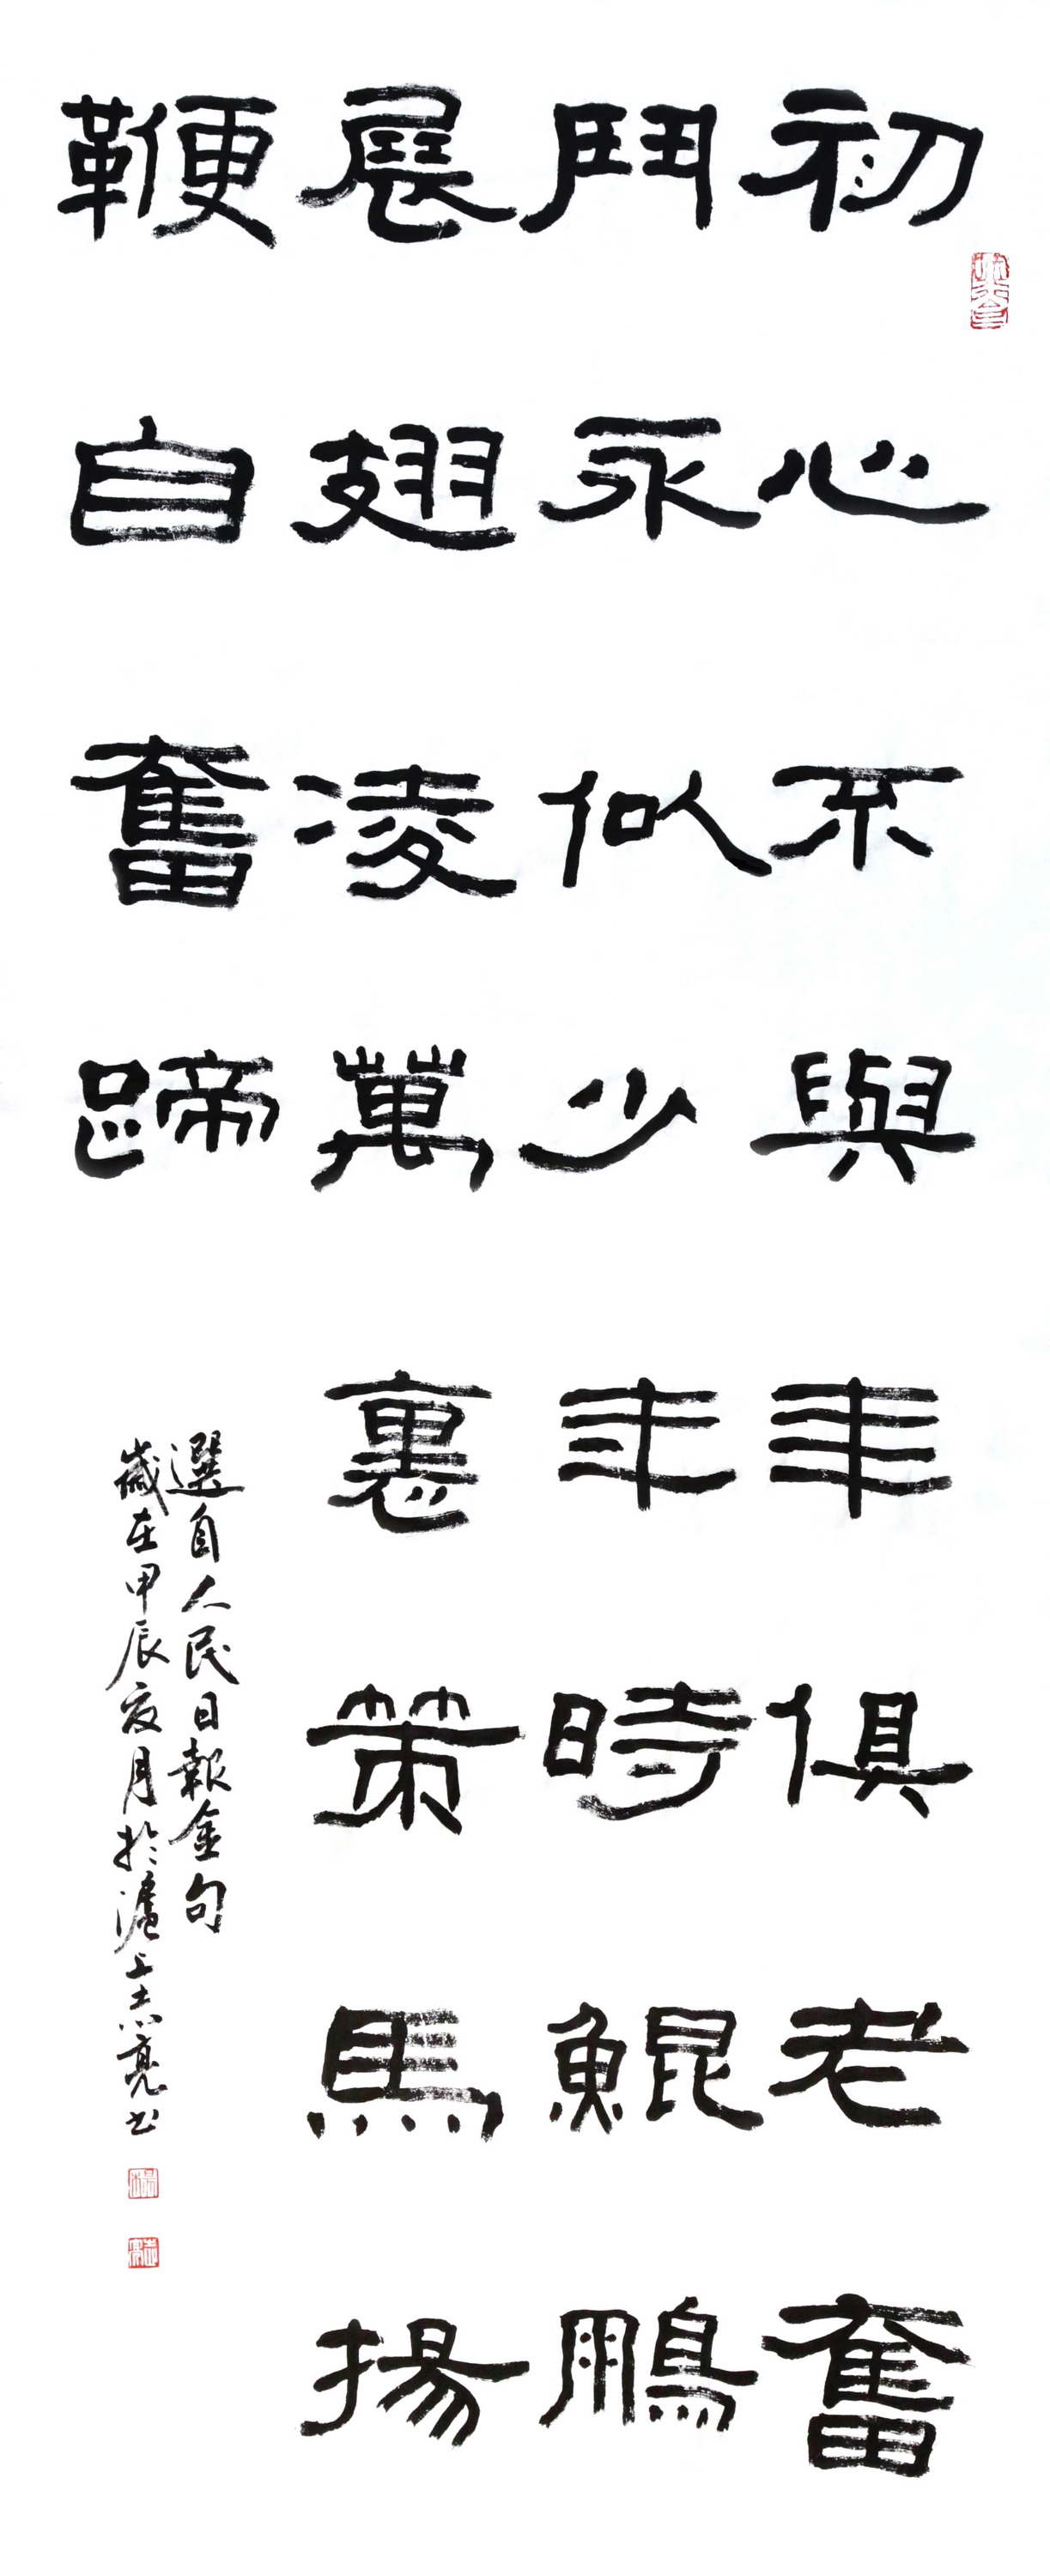 初心不與年俱老奮
鬥永似少年時鯤鵬
展翅凌萬裏策馬揚
鞭自奮蹄
選自人民日報金句
歲在甲辰夏月於滬上志亮书